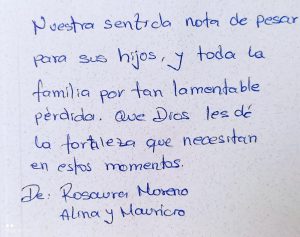 Nuestra sentida nota de pesar
para sus hijos, y toda la
familia por tan lamentable
pérdida. Que Dios les dé
la fortaleza que necesitan
en estos momentos.
De: Rosaura Moreno
Alina y Mauricio